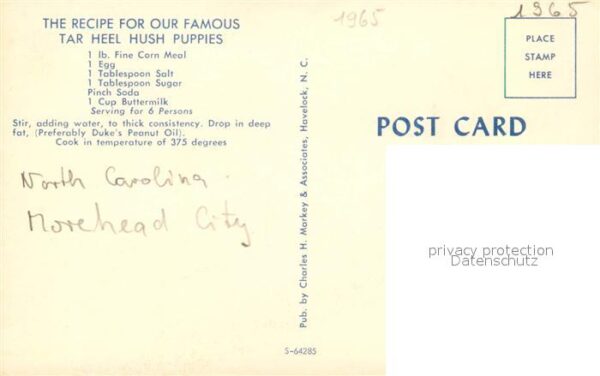 THE RECIPE FOR OUR FAMOUS
TAR HEEL HUSH PUPPIES
1 lb. Fine Corn Meal
1 Egg
1 Tablespoon Salt
1 Tablespoon Sugar
Pinch Soda
1 Cup Buttermilk
Serving for 6 Persons
Stir, adding water, to thick consistency. Drop in deep
fat, (Preferably Duke's Peanut Oil).
Cook in temperature of 375 degrees
North Carolina.
Morehead City
1965
Pub. by Charles H. Markey & Associates, Havelock, N. C.
S-64285
1965
PLACE
STAMP
HERE
POST CARD
privacy protection
Datenschutz